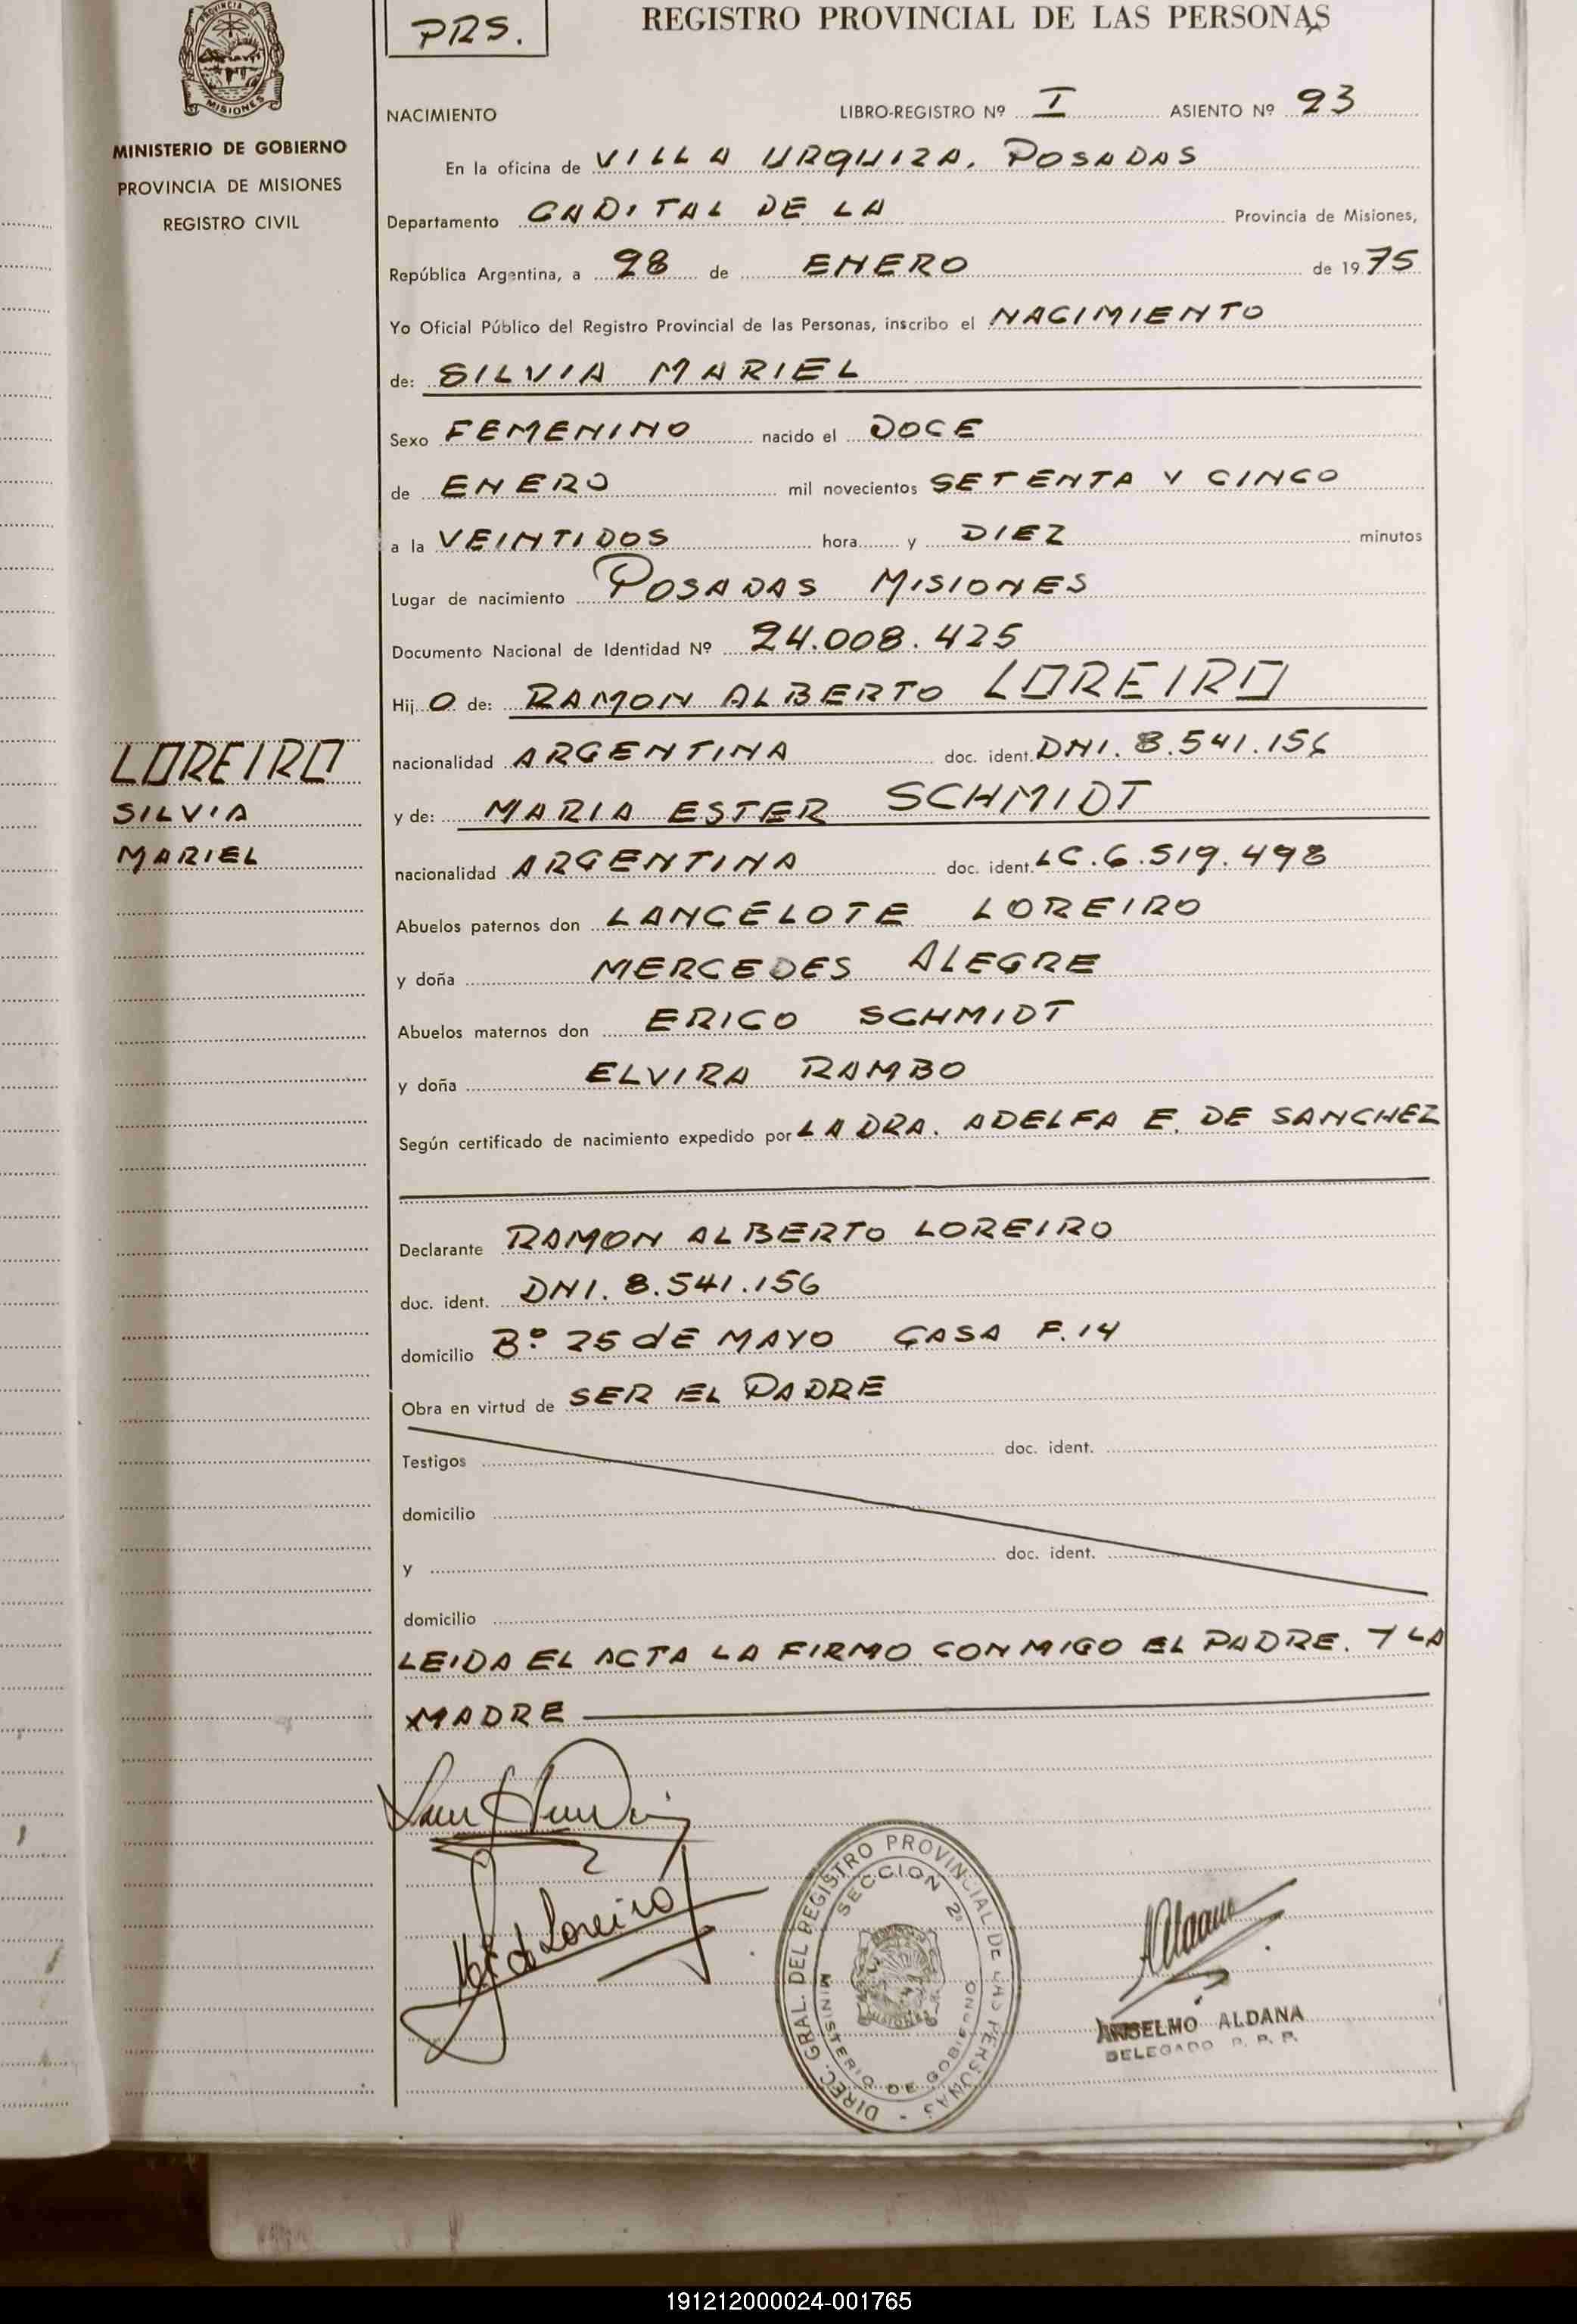 PROVINCIA DE
MISIONES
MINISTERIO DE GOBIERNO
PROVINCIA DE MISIONES
REGISTRO CIVIL
LOREIRO
SILVIA
MARIEL
PRS.
REGISTRO PROVINCIAL DE LAS PERSONAS
NACIMIENTO LIBRO-REGISTRO Nº I ASIENTO Nº 93
En la oficina de VILLA URQUIZA, POSADAS
Departamento CAPITAL DE LA Provincia de Misiones,
República Argentina, a 28 de ENERO de 1975
Yo Oficial Público del Registro Provincial de las Personas, inscribo el NACIMIENTO
de: SILVIA MARIEL
Sexo FEMENINO nacido el DOCE
de ENERO mil novecientos SETENTA Y CINCO
a la VEINTIDOS hora y DIEZ minutos
Lugar de nacimiento POSADAS MISIONES
Documento Nacional de Identidad Nº 24.008.425
Hij O de: RAMON ALBERTO LOREIRO
nacionalidad ARGENTINA doc. ident. DNI. 8.541.156
y de: MARIA ESTER SCHMIDT
nacionalidad ARGENTINA doc. ident. LC. 6.519.498
Abuelos paternos don LANCELOTE LOREIRO
y doña MERCEDES ALEGRE
Abuelos maternos don ERICO SCHMIDT
y doña ELVIRA RAMBO
Según certificado de nacimiento expedido por LA DRA. ADELFA E. DE SANCHEZ
Declarante RAMON ALBERTO LOREIRO
doc. ident. DNI. 8.541.156
domicilio Bº 25 dE MAYO CASA F.14
Obra en virtud de SER EL PADRE
Testigos doc. ident.
domicilio
y doc. ident.
domicilio
LEIDA EL ACTA LA FIRMO CONMIGO EL PADRE. Y LA
MADRE
de Loreiro
DIREC. GRAL. DEL REGISTRO PROVINCIAL DE LAS PERSONAS -
SECCION 2ª
MINISTERIO DE GOBIERNO
MISIONES
Aldana
ANSELMO ALDANA
DELEGADO R. P. P.
191212000024-001765